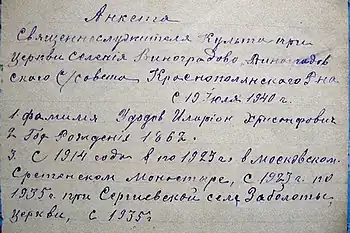 Анкета
Священнослужителя Культа при
Церкви Селенiя Виноградово, Виноградов
ского с/совета Краснополянского Р-на
с 19 Iюля 1940 г.
1. фамилия Удодов Иларiон Христофрович
2. Год Рождения 1862.
3. С 1914 года в по 1923 г. в Московском
Сретенском Монастыре, с 1923 г. по
1935 г. при Сергиевской села Заболотье,
Церкви, с 1935 г